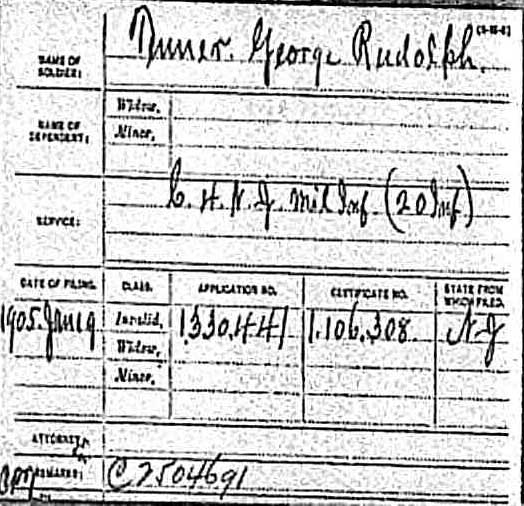 (3-88-8)
NAME OF SOLDIER: Duner. George Rudolph.
NAME OF DEPENDENT:
Widow,
Minor,
SERVICE: C. H. N. J. Mil Inf. (20 Inf)
DATE OF FILING. CLASS. APPLICATION NO. CERTIFICATE NO. STATE FROM WHICH FILED.
1905. Jan 19 Invalid, 1330.441 1.106.308. N J
Widow,
Minor,
ATTORNEY:
REMARKS: C 2504691